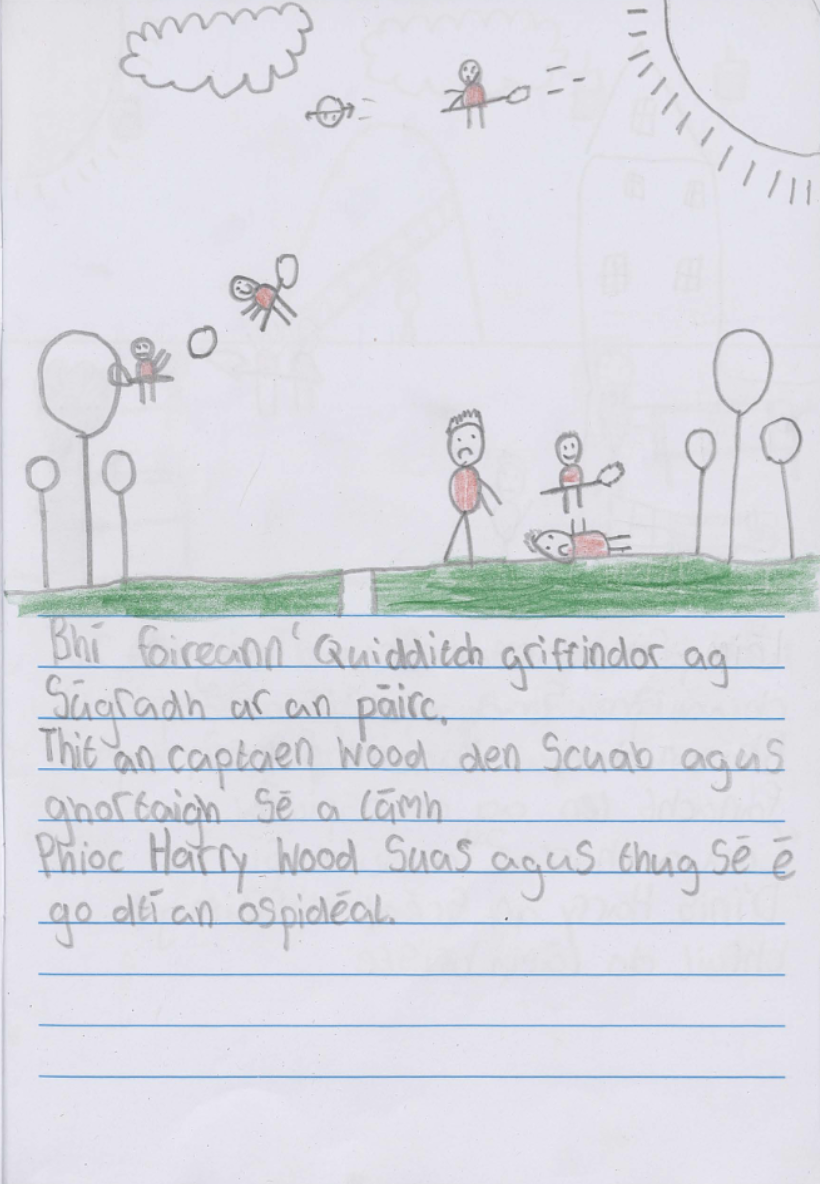 Bhí foireann Quidditch griffindor ag
Súgradh ar an páirc.
Thit an captaen Wood den Scuab agus
ghortaigh Sé a lámh
Phioc Harry Wood Suas agus thug Sé é
go dtí an ospidéal.